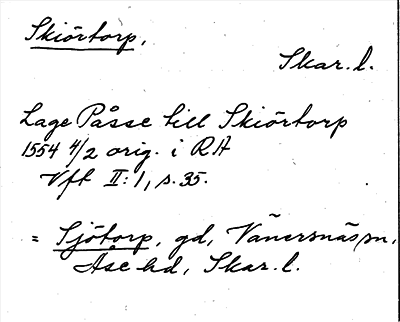 Skiörtorp,
Skar. l.
Lage Påsse till Skiörtorp
1554 4/2 orig. i RA
Vft II:1, s. 35.
= Sjötorp, gd, Vänersnäs sn,
Åse hd, Skar. l.